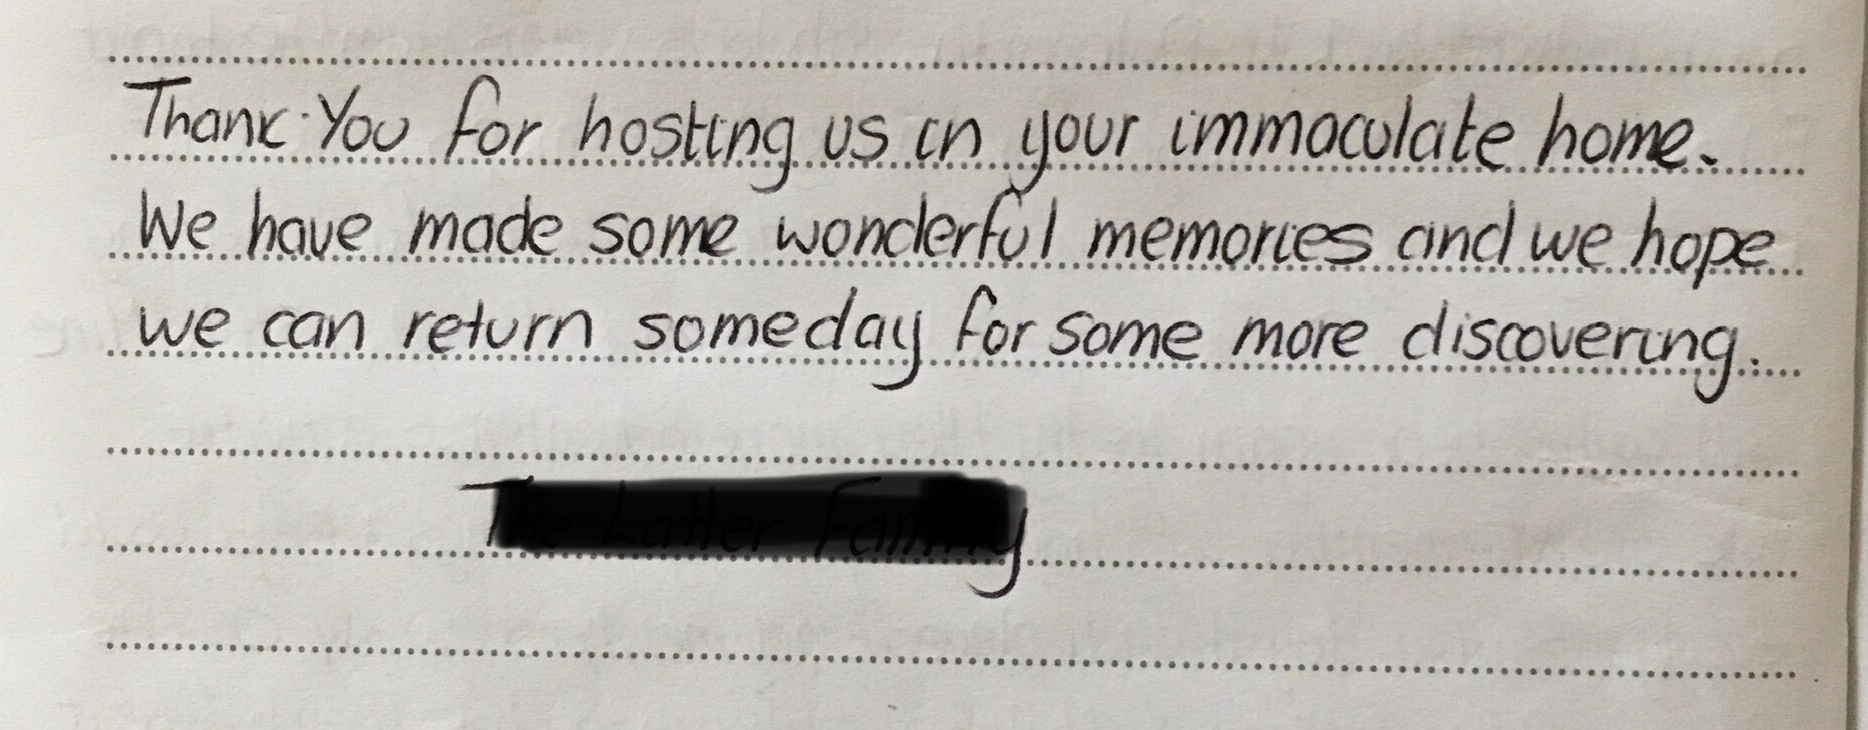 Thank You for hosting us in your immaculate home.
We have made some wonderful memories and we hope
we can return someday for some more discovering.